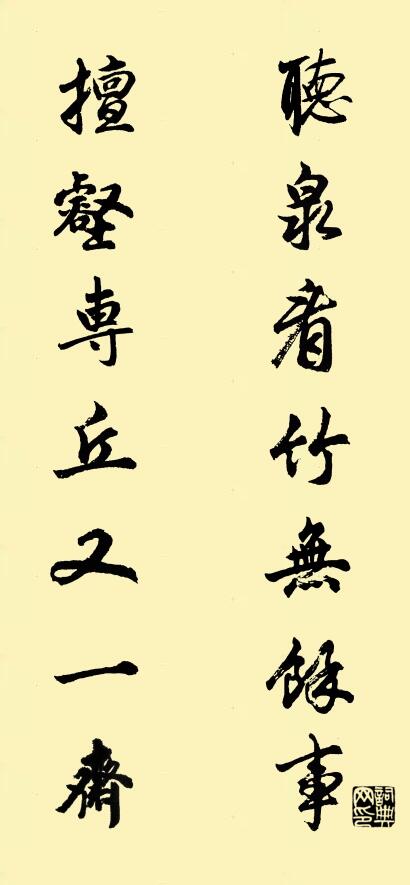 聽泉看竹無餘事
擅壑專丘又一齋
詞典网印